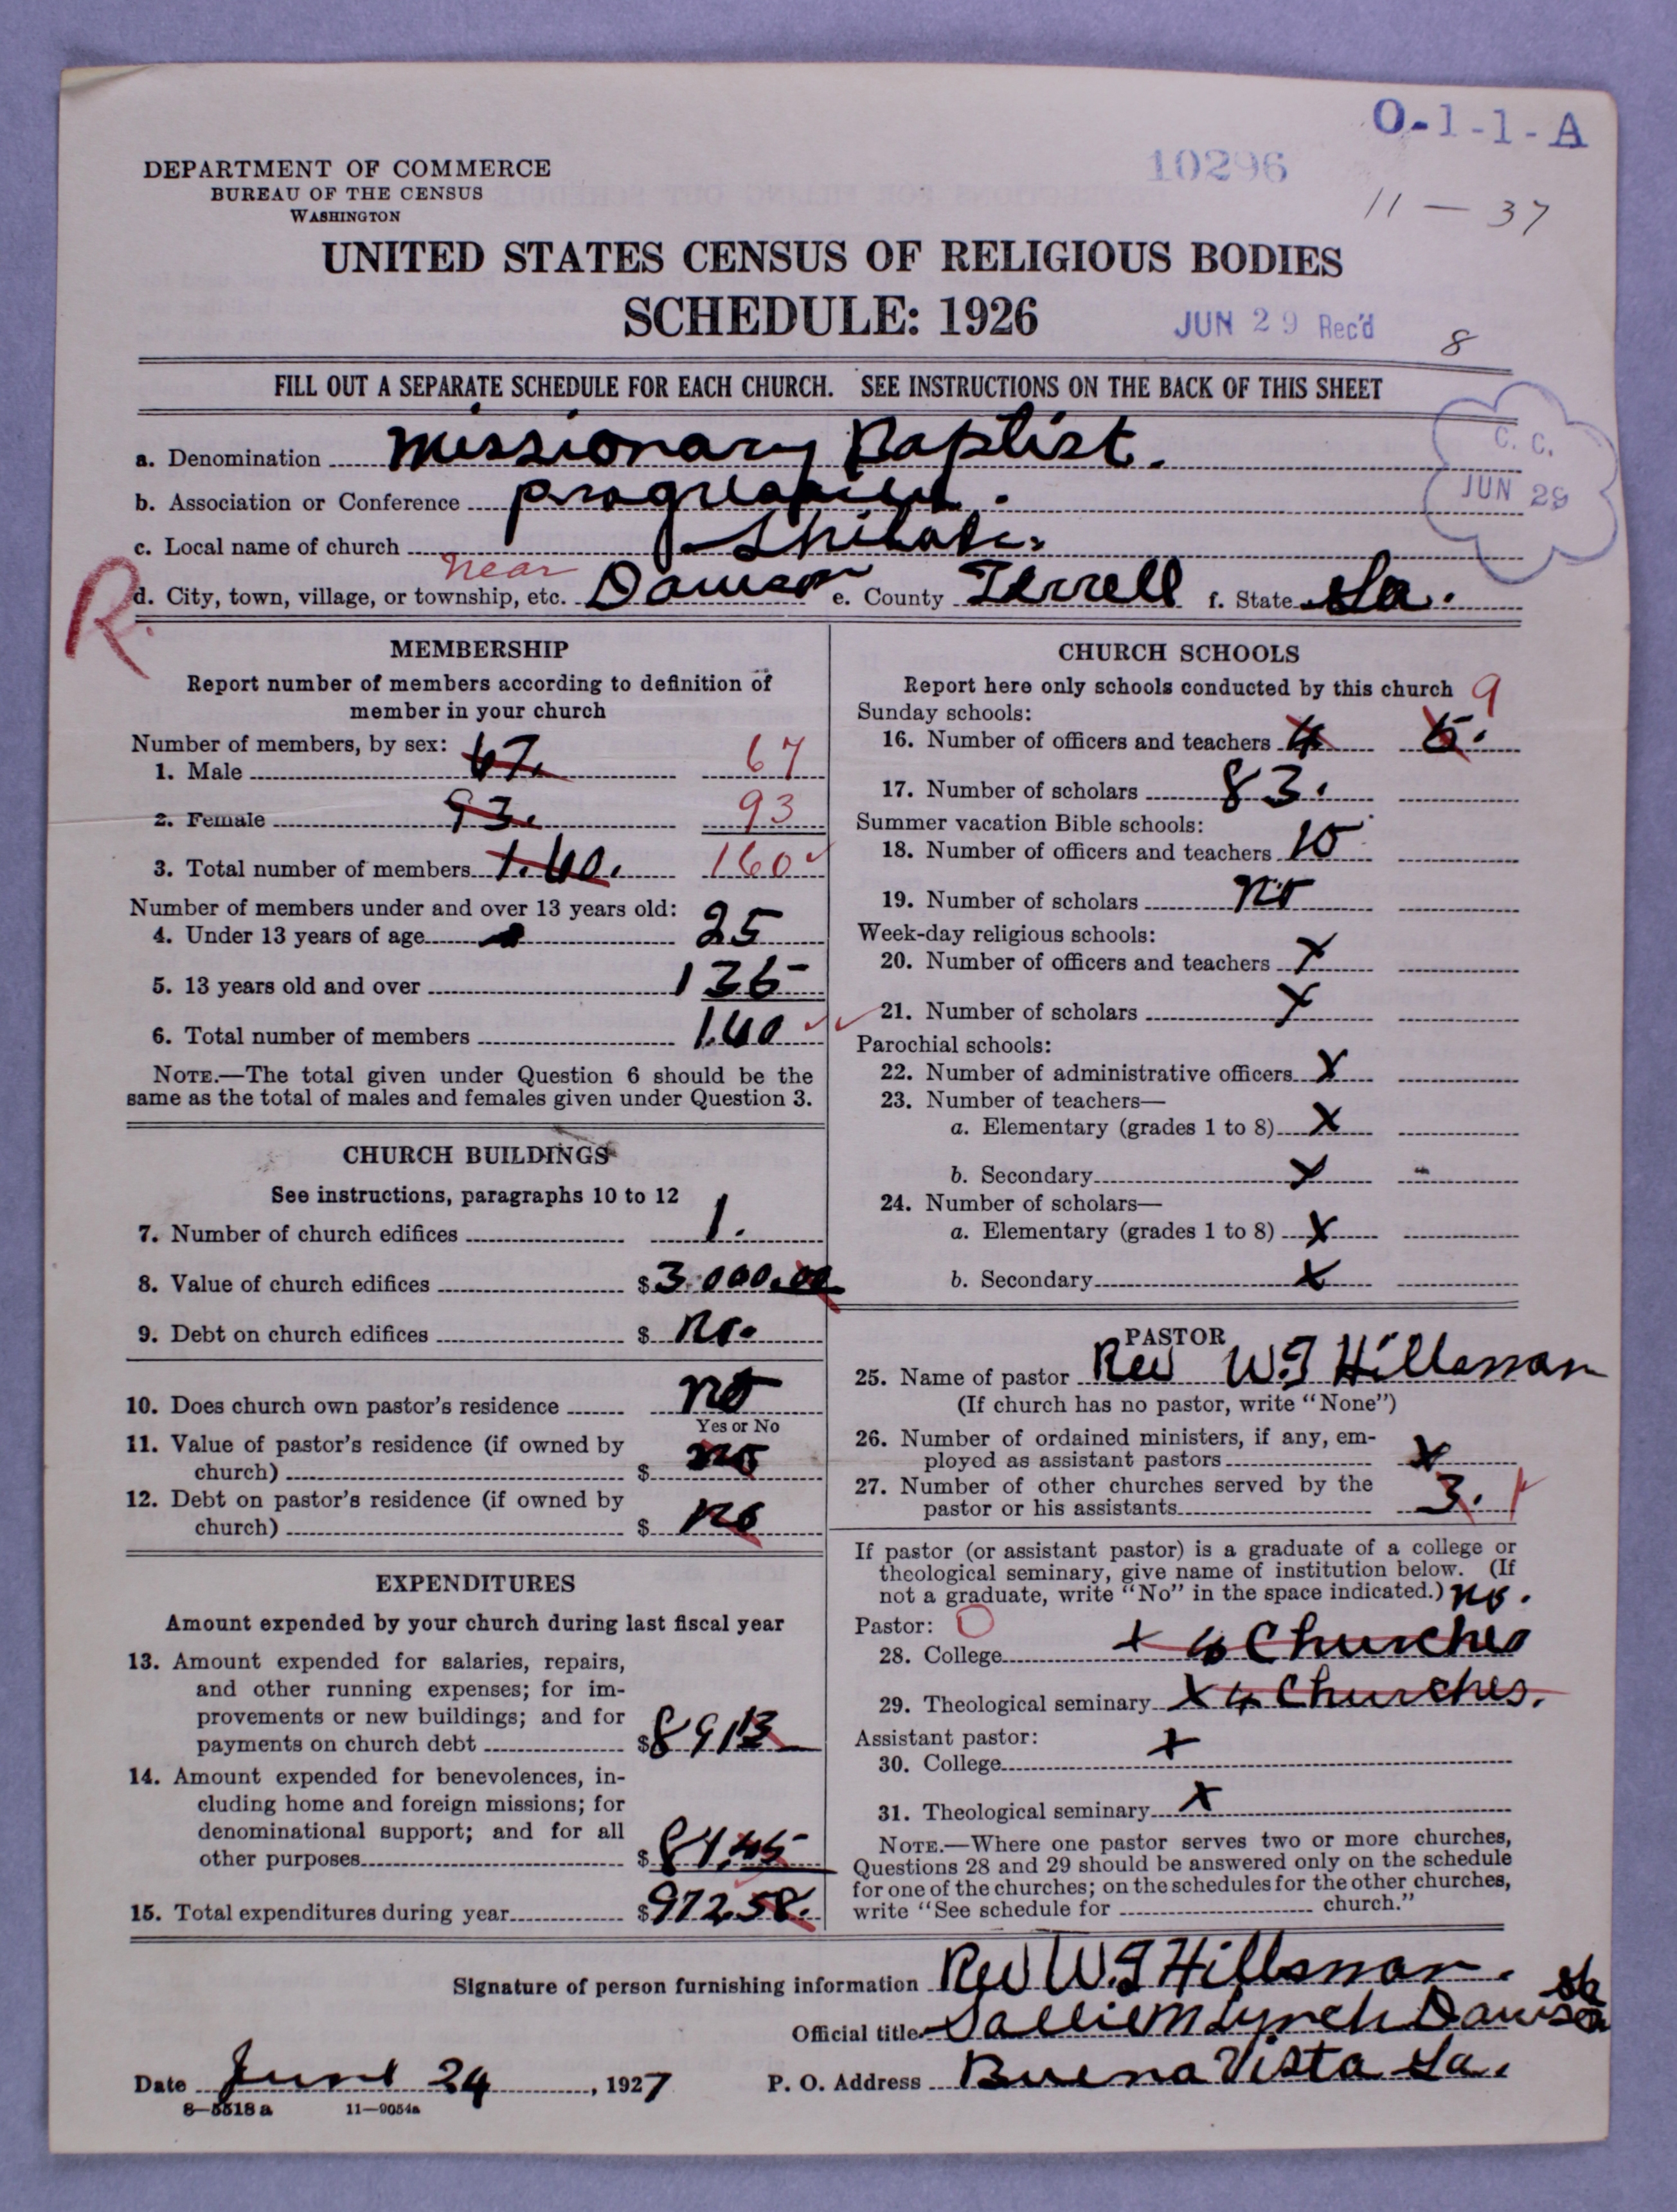 O-1-1-A
10296
11 — 37
DEPARTMENT OF COMMERCE
BUREAU OF THE CENSUS
WASHINGTON
UNITED STATES CENSUS OF RELIGIOUS BODIES
SCHEDULE: 1926
JUN 29 Rec'd
8
FILL OUT A SEPARATE SCHEDULE FOR EACH CHURCH. SEE INSTRUCTIONS ON THE BACK OF THIS SHEET
C. C.
JUN 29
a. Denomination Missionary Baptist.
b. Association or Conference
c. Local name of church
near
R.
d. City, town, village, or township, etc. Dawson e. County Terrell f. State Ga.
MEMBERSHIP
Report number of members according to definition of
member in your church
Number of members, by sex:
1. Male 67. 67
2. Female 93. 93
3. Total number of members 1.60. 160
Number of members under and over 13 years old:
4. Under 13 years of age 25
5. 13 years old and over 135
6. Total number of members 1.60
NOTE.—The total given under Question 6 should be the
same as the total of males and females given under Question 3.
CHURCH BUILDINGS
See instructions, paragraphs 10 to 12
7. Number of church edifices 1.
8. Value of church edifices $3.000.00
9. Debt on church edifices $ no.
10. Does church own pastor's residence no
Yes or No
11. Value of pastor's residence (if owned by
church) $ no
12. Debt on pastor's residence (if owned by
church) $ no
EXPENDITURES
Amount expended by your church during last fiscal year
13. Amount expended for salaries, repairs,
and other running expenses; for im-
provements or new buildings; and for
payments on church debt $89113
14. Amount expended for benevolences, in-
cluding home and foreign missions; for
denominational support; and for all
other purposes $81.45
15. Total expenditures during year $972.58.
CHURCH SCHOOLS
Report here only schools conducted by this church
9
Sunday schools:
16. Number of officers and teachers 4 5.
17. Number of scholars 83.
Summer vacation Bible schools:
18. Number of officers and teachers 10
19. Number of scholars no
Week-day religious schools:
20. Number of officers and teachers X
21. Number of scholars X
Parochial schools:
22. Number of administrative officers X
23. Number of teachers—
a. Elementary (grades 1 to 8) X
b. Secondary X
24. Number of scholars—
a. Elementary (grades 1 to 8) X
b. Secondary X
PASTOR
25. Name of pastor Rev W. J Hillsman
(If church has no pastor, write "None")
26. Number of ordained ministers, if any, em-
ployed as assistant pastors X
27. Number of other churches served by the
pastor or his assistants 3.
If pastor (or assistant pastor) is a graduate of a college or
theological seminary, give name of institution below. (If
not a graduate, write "No" in the space indicated.) no.
Pastor: O
28. College X 4 Churches
29. Theological seminary X 4 Churches.
Assistant pastor:
30. College X
31. Theological seminary X
NOTE.—Where one pastor serves two or more churches,
Questions 28 and 29 should be answered only on the schedule
for one of the churches; on the schedules for the other churches,
write "See schedule for church."
Signature of person furnishing information Rev W. J Hillsman.
Official title Sallie M Lynch Dawson Ga
Date June 24, 1927 P. O. Address Buena Vista Ga.
8—5518 a 11—9054a